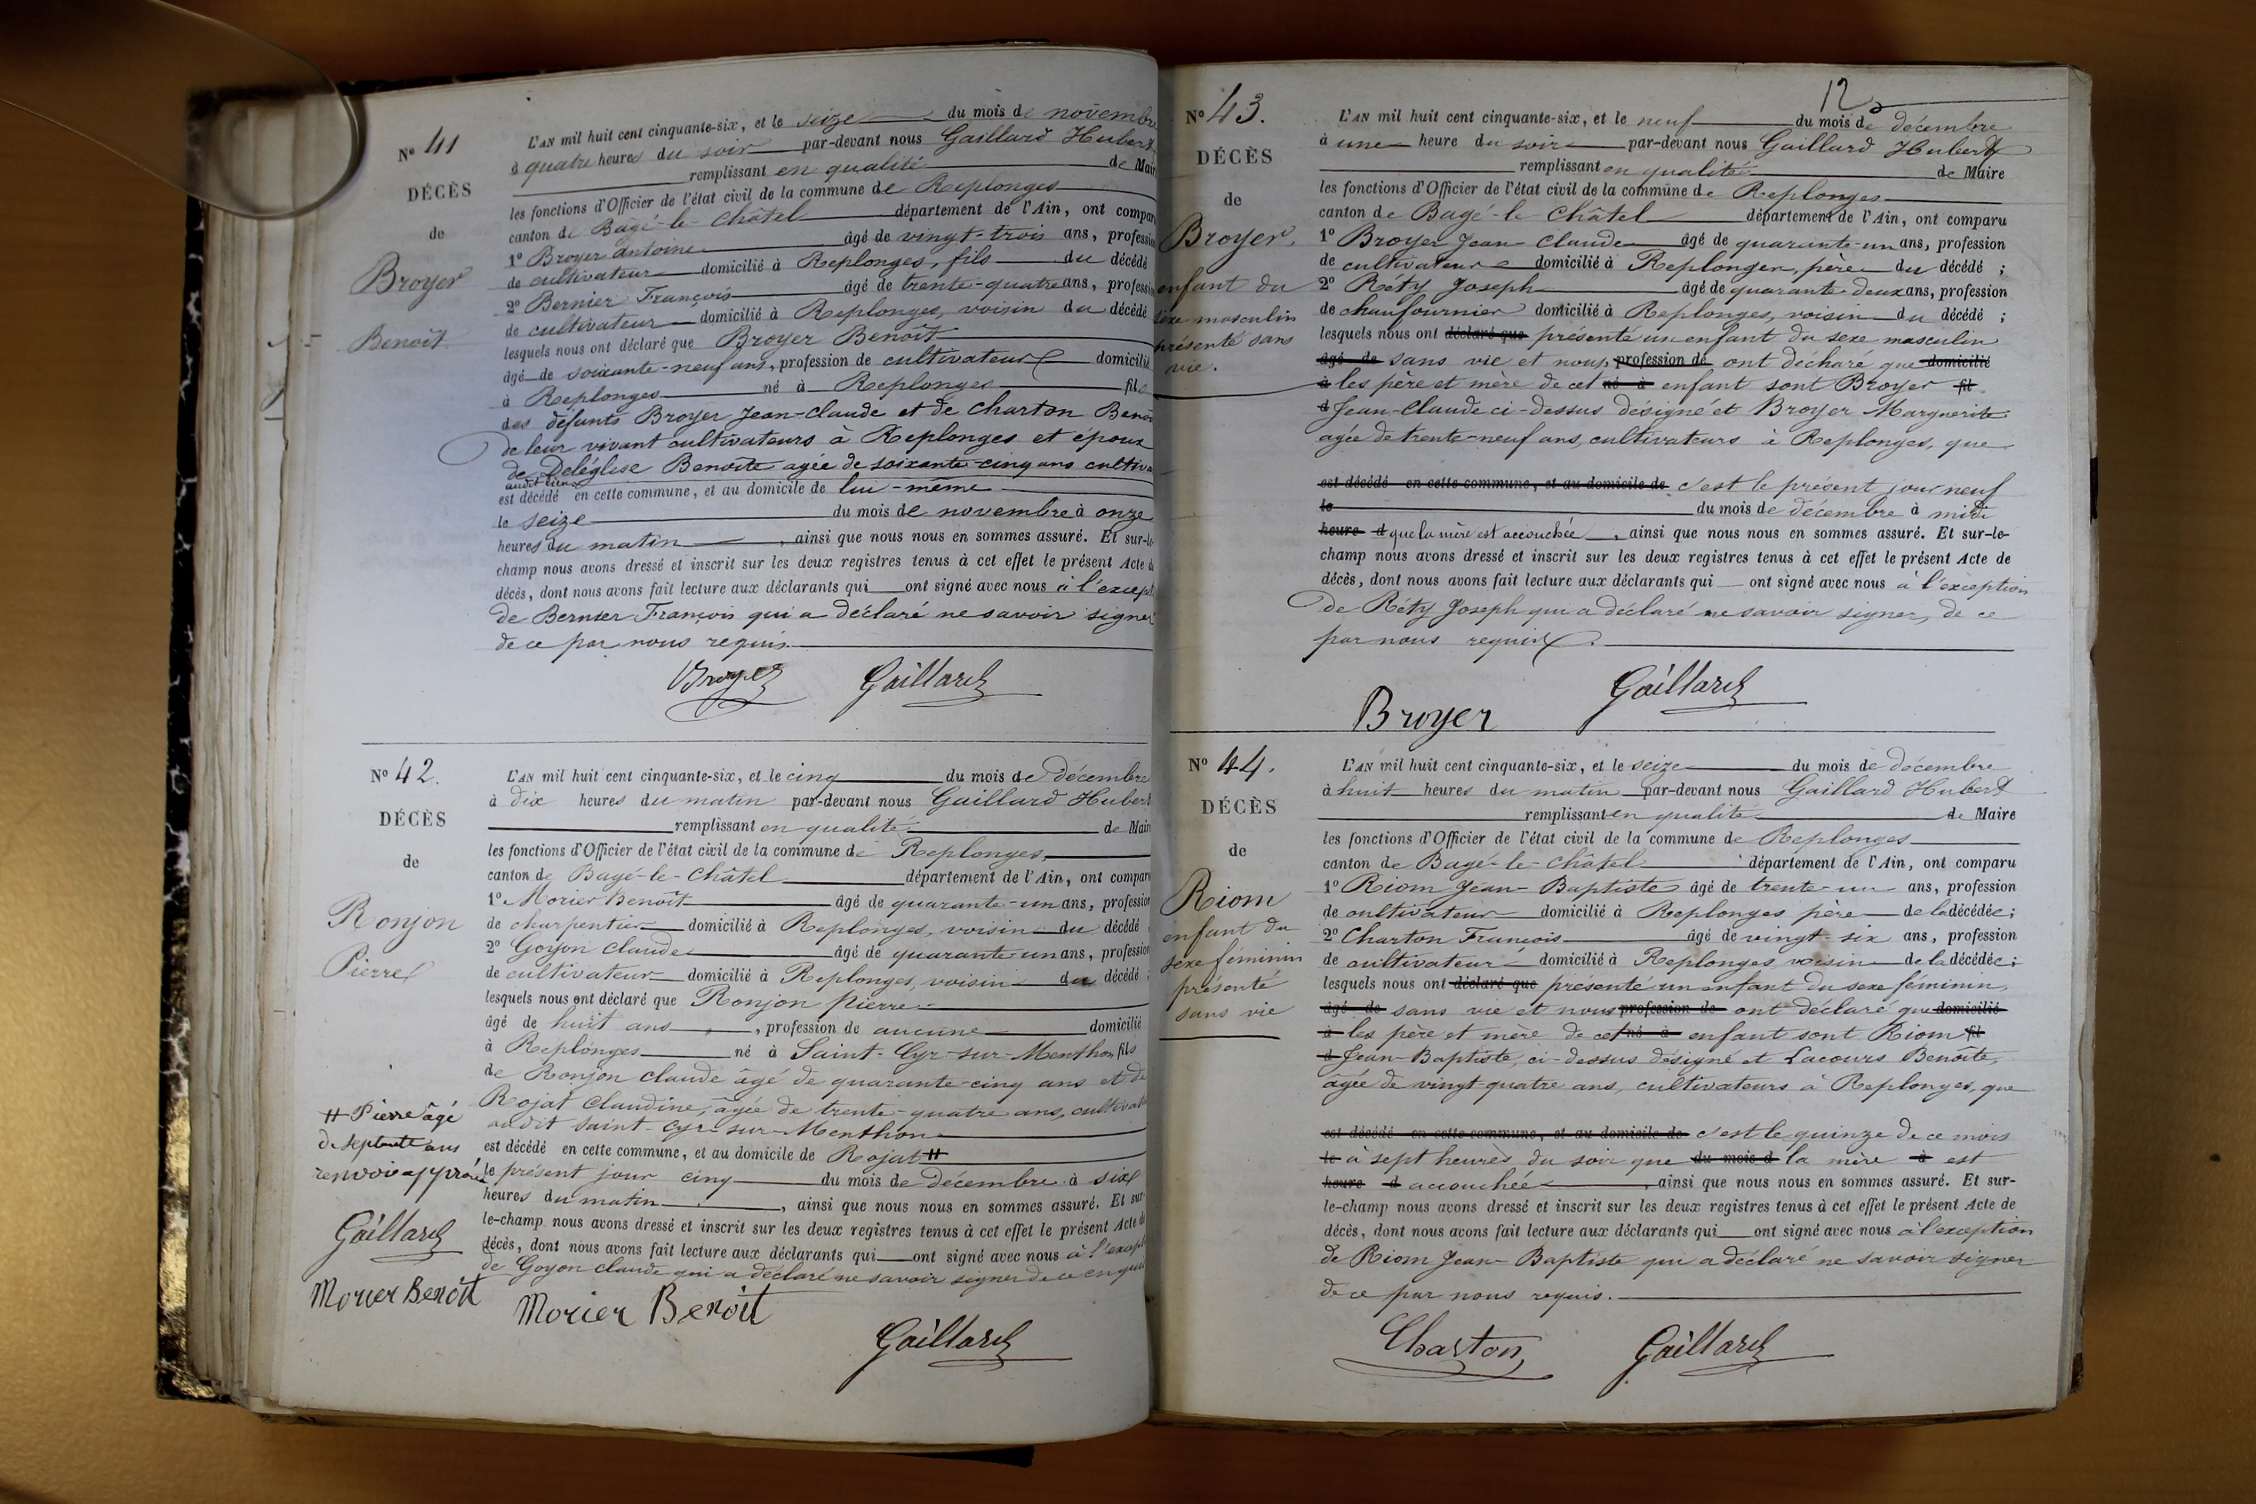 Nº 41
DÉCÈS
de
Broyer
Benoît
L'AN mil huit cent cinquante-six, et le seize du mois de novembre
à quatre heures du soir par-devant nous Gaillard Hubert
remplissant en qualité de Mair
les fonctions d'Officier de l'état civil de la commune de Replonges
canton de Bagé-le-Châtel département de l'Ain, ont compar
1º Broyer Antoine âgé de vingt-trois ans, profession
de cultivateur domicilié à Replonges, fils du décédé
2º Bernier François âgé de trente-quatre ans, profession
de cultivateur domicilié à Replonges, voisin du décédé
lesquels nous ont déclaré que Broyer Benoît
âgé de soixante-neuf ans, profession de cultivateur domicilié
à Replonges né à Replonges fils
des défunts Broyer Jean-Claude et de Charton Benoî
de leur vivant cultivateurs à Replonges et époux
de Deléglise Benoîte agée de soixante-cinq ans cultiva
audit lieu
est décédé en cette commune, et au domicile de lui-même
le seize du mois de novembre à onze
heures du matin, ainsi que nous nous en sommes assuré. Et sur-le-
champ nous avons dressé et inscrit sur les deux registres tenus à cet effet le présent Acte de
décès, dont nous avons fait lecture aux déclarants qui ont signé avec nous à l'except
de Bernier François qui a déclaré ne savoir signer
de ce par nous requis.
Broyer Gaillard
Nº 42.
DÉCÈS
de
Ronjon
Pierre
L'AN mil huit cent cinquante-six, et le cinq du mois de Décembre
à dix heures du matin par-devant nous Gaillard Hubert
remplissant en qualité de Mair
les fonctions d'Officier de l'état civil de la commune de Replonges
canton de Bagé-le-Châtel département de l'Ain, ont compar
1º Morier Benoît âgé de quarante-un ans, profession
de charpentier domicilié à Replonges, voisin du décédé
2º Goyon Claude âgé de quarante un ans, profession
de cultivateur domicilié à Replonges, voisin du décédé
lesquels nous ont déclaré que Ronjon Pierre
âgé de huit ans, profession de aucune domicilié
à Replonges né à Saint-Cyr-sur-Menthon fils
de Ronjon Claude âgé de quarante-cinq ans et de
Rojat Claudine, âgée de trente-quatre ans, cultivat
audit Saint-Cyr-sur-Menthon
est décédé en cette commune, et au domicile de Rojat #
le présent jour cinq du mois de décembre à six
heures du matin, ainsi que nous nous en sommes assuré. Et sur-
le-champ nous avons dressé et inscrit sur les deux registres tenus à cet effet le présent Acte de
décès, dont nous avons fait lecture aux déclarants qui ont signé avec nous à l'except
de Goyon Claude qui a déclaré ne savoir signer de ce enquis
# Pierre âgé
de septante ans
renvoi approuvé
Gaillard
Morier Benoît
Morier Benoît
Gaillard
12
Nº 43.
DÉCÈS
de
Broyer,
enfant du
sexe masculin
présenté sans
vie.
L'AN mil huit cent cinquante-six, et le neuf du mois de décembre
à une heure du soir par-devant nous Gaillard Hubert
remplissant en qualité de Maire
les fonctions d'Officier de l'état civil de la commune de Replonges
canton de Bagé-le-Châtel département de l'Ain, ont comparu
1º Broyer Jean-Claude âgé de quarante-un ans, profession
de cultivateur domicilié à Replonges, père du décédé ;
2º Réty Joseph âgé de quarante-deux ans, profession
de chaufournier domicilié à Replonges, voisin du décédé ;
lesquels nous ont déclaré que présenté un enfant du sexe masculin
âgé de sans vie et nous profession de ont déclaré que domicilié
à les père et mère de cet né à enfant sont Broyer fil
d Jean-Claude ci-dessus désigné et Broyer Marguerite
agée de trente-neuf ans, cultivateurs à Replonges, que
est décédé en cette commune, et au domicile de c'est le présent jour neuf
le du mois de décembre à midi
heure d que la mère est accouchée, ainsi que nous nous en sommes assuré. Et sur-le-
champ nous avons dressé et inscrit sur les deux registres tenus à cet effet le présent Acte de
décès, dont nous avons fait lecture aux déclarants qui ont signé avec nous à l'exception
de Réty Joseph qui a déclaré ne savoir signer, de ce
par nous requis.
Broyer Gaillard
Nº 44.
DÉCÈS
de
Riom
enfant du
sexe féminin
présenté
sans vie
L'AN mil huit cent cinquante-six, et le seize du mois de décembre
à huit heures du matin par-devant nous Gaillard Hubert
remplissant en qualité de Maire
les fonctions d'Officier de l'état civil de la commune de Replonges
canton de Bagé-le-Châtel département de l'Ain, ont comparu
1º Riom Jean-Baptiste âgé de trente-un ans, profession
de cultivateur domicilié à Replonges père de la décédée ;
2º Charton François âgé de vingt-six ans, profession
de cultivateur domicilié à Replonges voisin de la décédée ;
lesquels nous ont déclaré que présenté un enfant du sexe féminin,
âgé de sans vie et nous profession de ont déclaré que domicilié
à les père et mère de cet né à enfant sont Riom fil
d Jean-Baptiste, ci-dessus désigné et Lacours Benoîte,
âgée de vingt-quatre ans, cultivateurs à Replonges, que
est décédé en cette commune, et au domicile de c'est le quinze de ce mois
le à sept heures du soir que du mois d la mère à est
heure d accouchée, ainsi que nous nous en sommes assuré. Et sur-
le-champ nous avons dressé et inscrit sur les deux registres tenus à cet effet le présent Acte de
décès, dont nous avons fait lecture aux déclarants qui ont signé avec nous à l'exception
de Riom Jean-Baptiste qui a déclaré ne savoir signer
de ce par nous requis.
Charton Gaillard